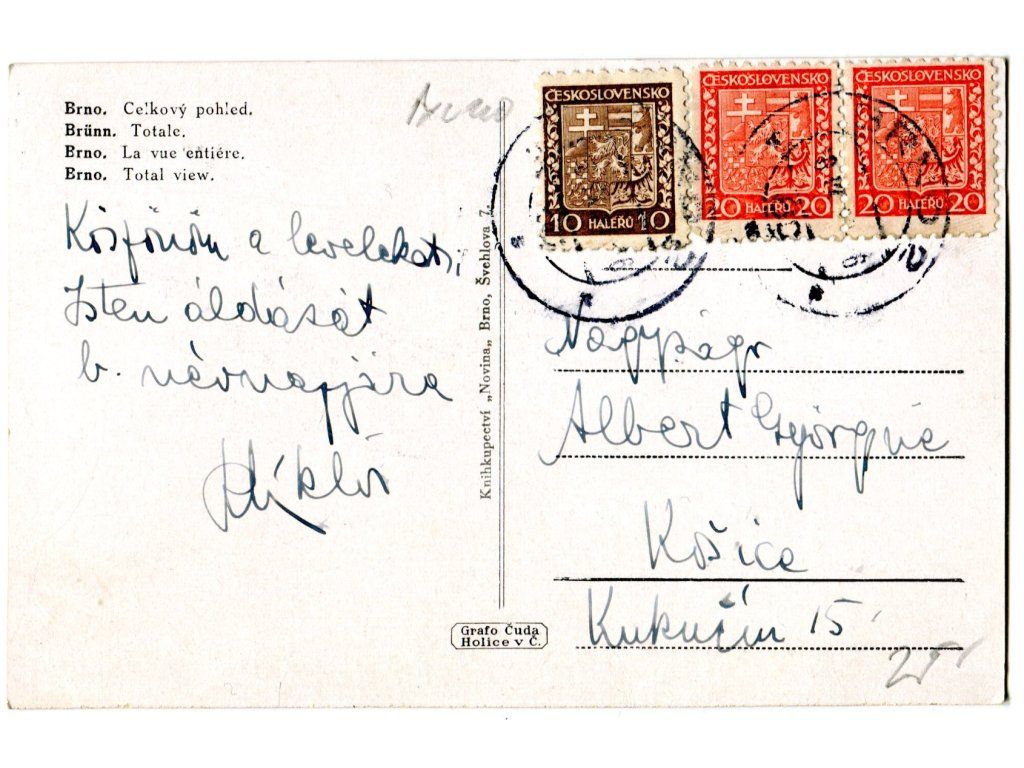 Brno. Celkový pohled.
Brünn. Totale.
Brno. La vue entiére.
Brno. Total view.
Brno
Köszönöm a leveleket,
Isten áldását
b. névnapjára
Miklós
Knihkupectví „Novina," Brno, Švehlova 7.
Grafo Čuda
Holice v Č.
ČESKOSLOVENSKO
10 HALÉŘŮ 10
ČESKOSLOVENSKO
20 HALÉŘŮ 20
ČESKOSLOVENSKO
20 HALÉŘŮ 20
Nagyságr
Albert Györgyné
Košice
Kukučín 15